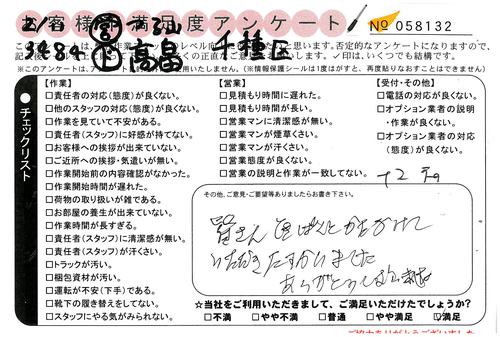 お客様満足度アンケート
No 058132
千種区
高畠
※このアンケートは、
(※情報保護シールは1度がはすと、再度貼りなおすことはできません)
チェックリスト
【作業】
□責任者の対応(態度)が良くない。
□他のスタッフの対応(態度)が良くない。
□作業を見ていて不安がある。
□責任者(スタッフ)に好感が持てない。
□お客様への挨拶が出来ていない。
□ご近所への挨拶・気遣いが無い。
□作業開始前の内容確認がなかった。
□作業開始時間が遅れた。
□荷物の取り扱いが雑である。
□お部屋の養生が出来ていない。
□作業時間が長すぎる。
□責任者(スタッフ)に清潔感が無い。
□責任者(スタッフ)が汗くさい。
□トラックが汚い。
□梱包資材が汚い。
□運転が不安(下手)である。
□靴下の履き替えをしてない。
□スタッフにやる気がみられない。
【営業】
□見積もり時間に遅れた。
□見積もり時間が長い。
□営業マンに清潔感が無い。
□営業マンが煙草くさい。
□営業マンが汗くさい。
□営業態度が良くない。
□営業の説明と作業が一致してない。
【受付・その他】
□電話の対応が良くない。
□オプション業者の説明
・作業が良くない。
□オプション業者の対応
(態度)が良くない。
その他、ご意見・ご要望等ありましたらお書き下さい。
皆さん てきぱきと かたづけて
いただき たすかりました
ありがとうございました
☆当社をご利用いただきまして、ご満足いただけたでしょうか?
□不満 □やや不満 □普通 □やや満足 ☑満足
ご協力ありがとうございました